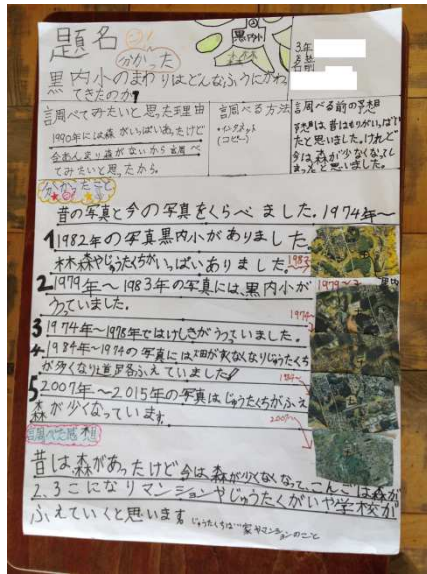 題名
分かった
黒内小
森林
3年
名前
黒内小のまわりはどんなふうにかわっ
てきたのか?
調べてみたいと思った理由
1990年には森がいっぱいあったけど
今あんまり森がないから調べ
てみたいと思ったから。
調べる方法
・インタネット
(コピー)
調べる前の予想
予想は、昔はもりがいっぱい
だと思いました。けれど
今は、森が少なくなってし
まったと思いました。
分かったこと
昔の写真と今の写真をくらべました。1974年〜
1 1982年の写真黒内小がありました。
林森やじゅうたくちがいっぱいありました。
2 1979年〜1983年の写真には、黒内小が
うつっていました。
3 1974年〜1978年ではけしきがうつっていました。
4 1984年〜1974の写真には畑が少なくなりじゅうたくち
が多くなり道路もふえていました!
5 2007年〜2015年の写真はじゅうたくちがふえ
森が少なくなっています。
1974〜
2007〜
調べた感想
昔は、森があったけど今は、森が少くなくなって、こんごは森が
2、3こになりマンションやじゅうたくがいや学校が
ふえていくと思います。
じゅうたくちは…家やマンションのこと